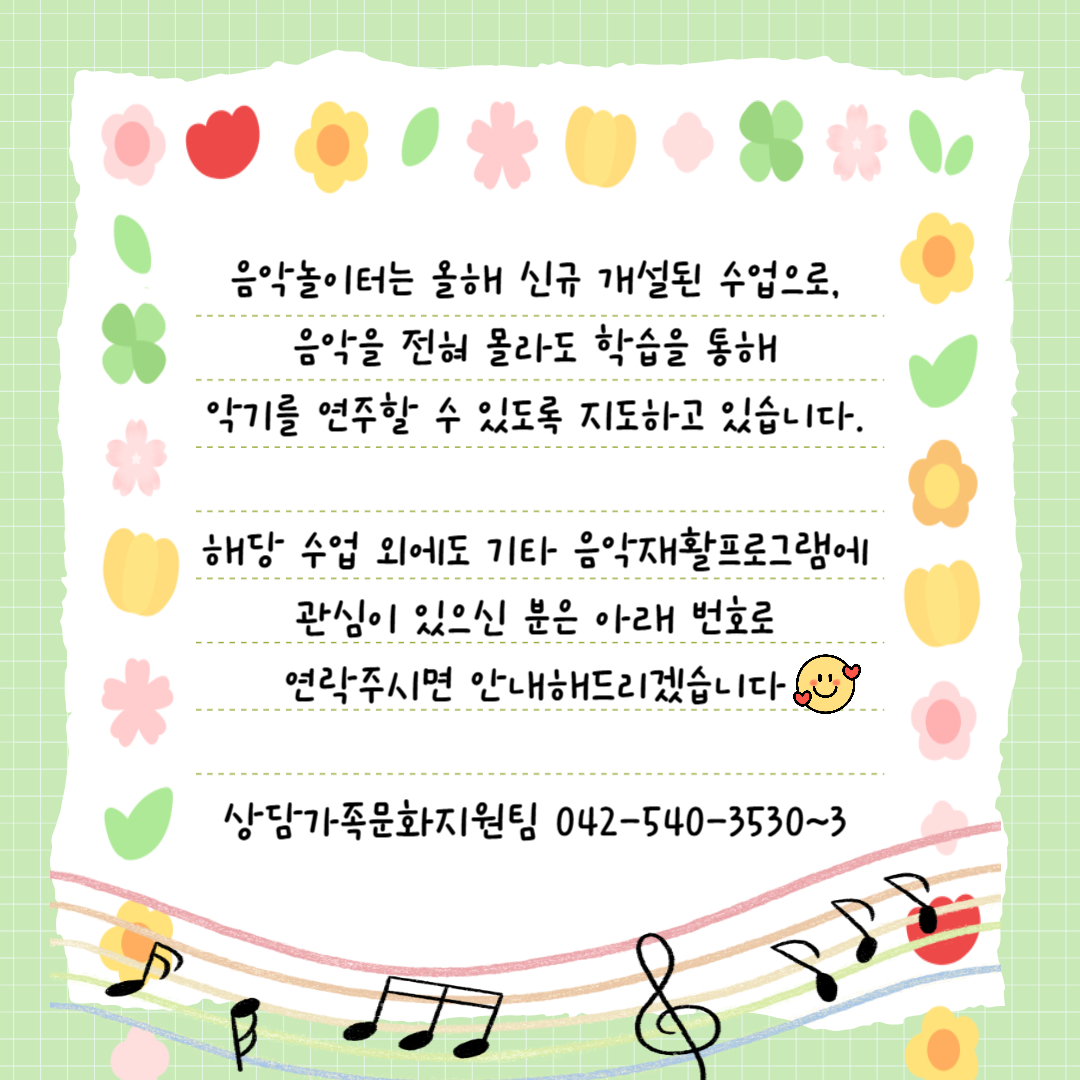 음악놀이터는 올해 신규 개설된 수업으로,
음악을 전혀 몰라도 학습을 통해
악기를 연주할 수 있도록 지도하고 있습니다.
해당 수업 외에도 기타 음악재활프로그램에
관심이 있으신 분은 아래 번호로
연락주시면 안내해드리겠습니다
상담가족문화지원팀 042-540-3530~3